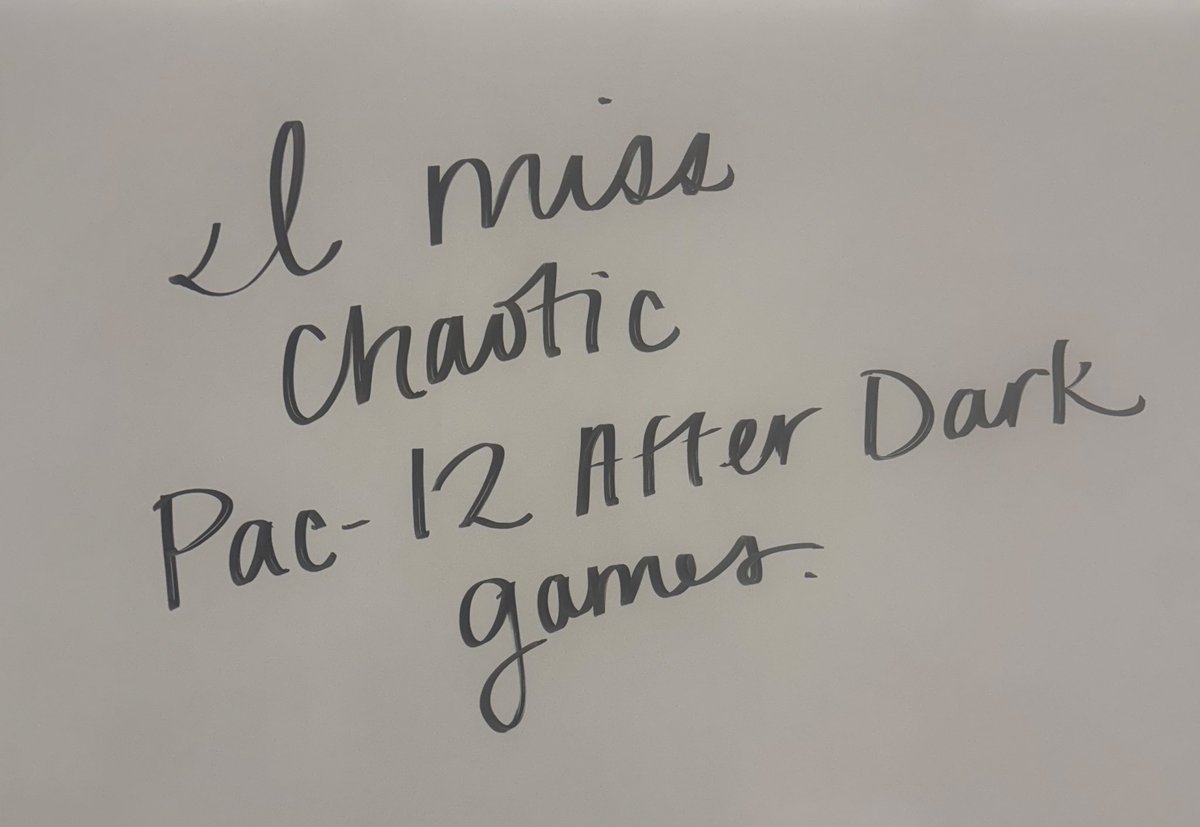 I miss
chaotic
Pac-12 After Dark
games.